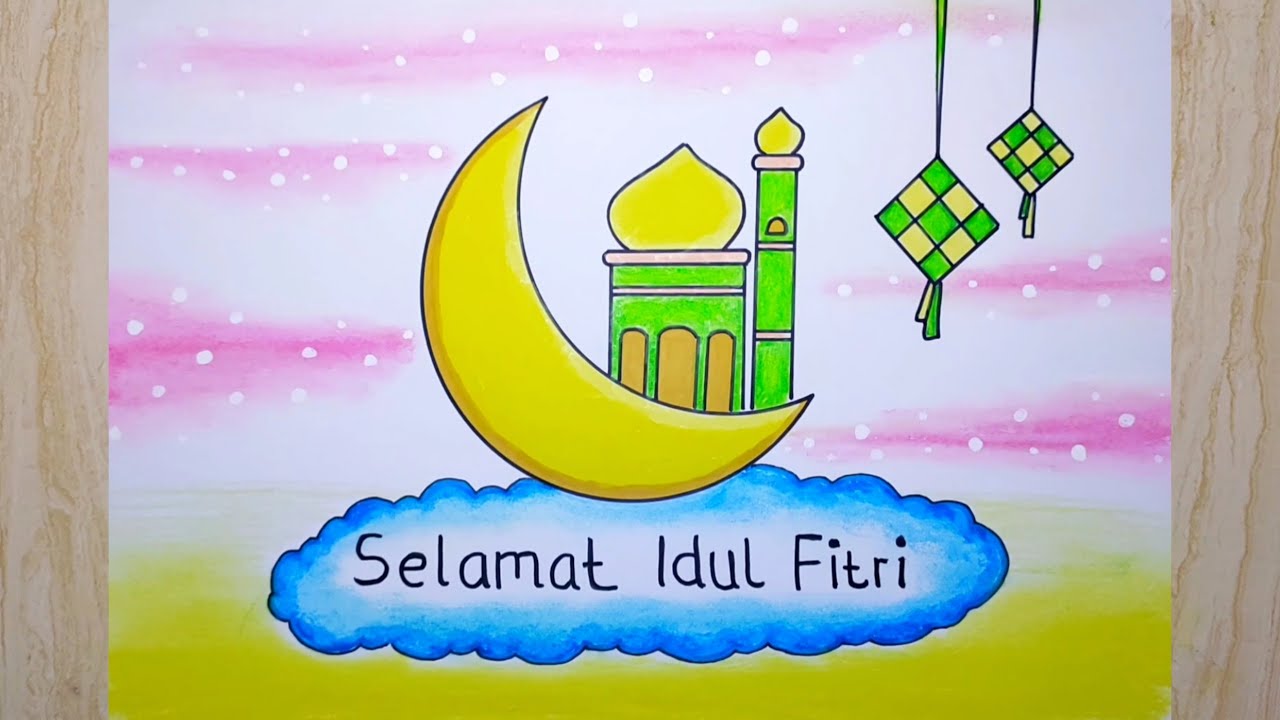 Selamat Idul Fitri